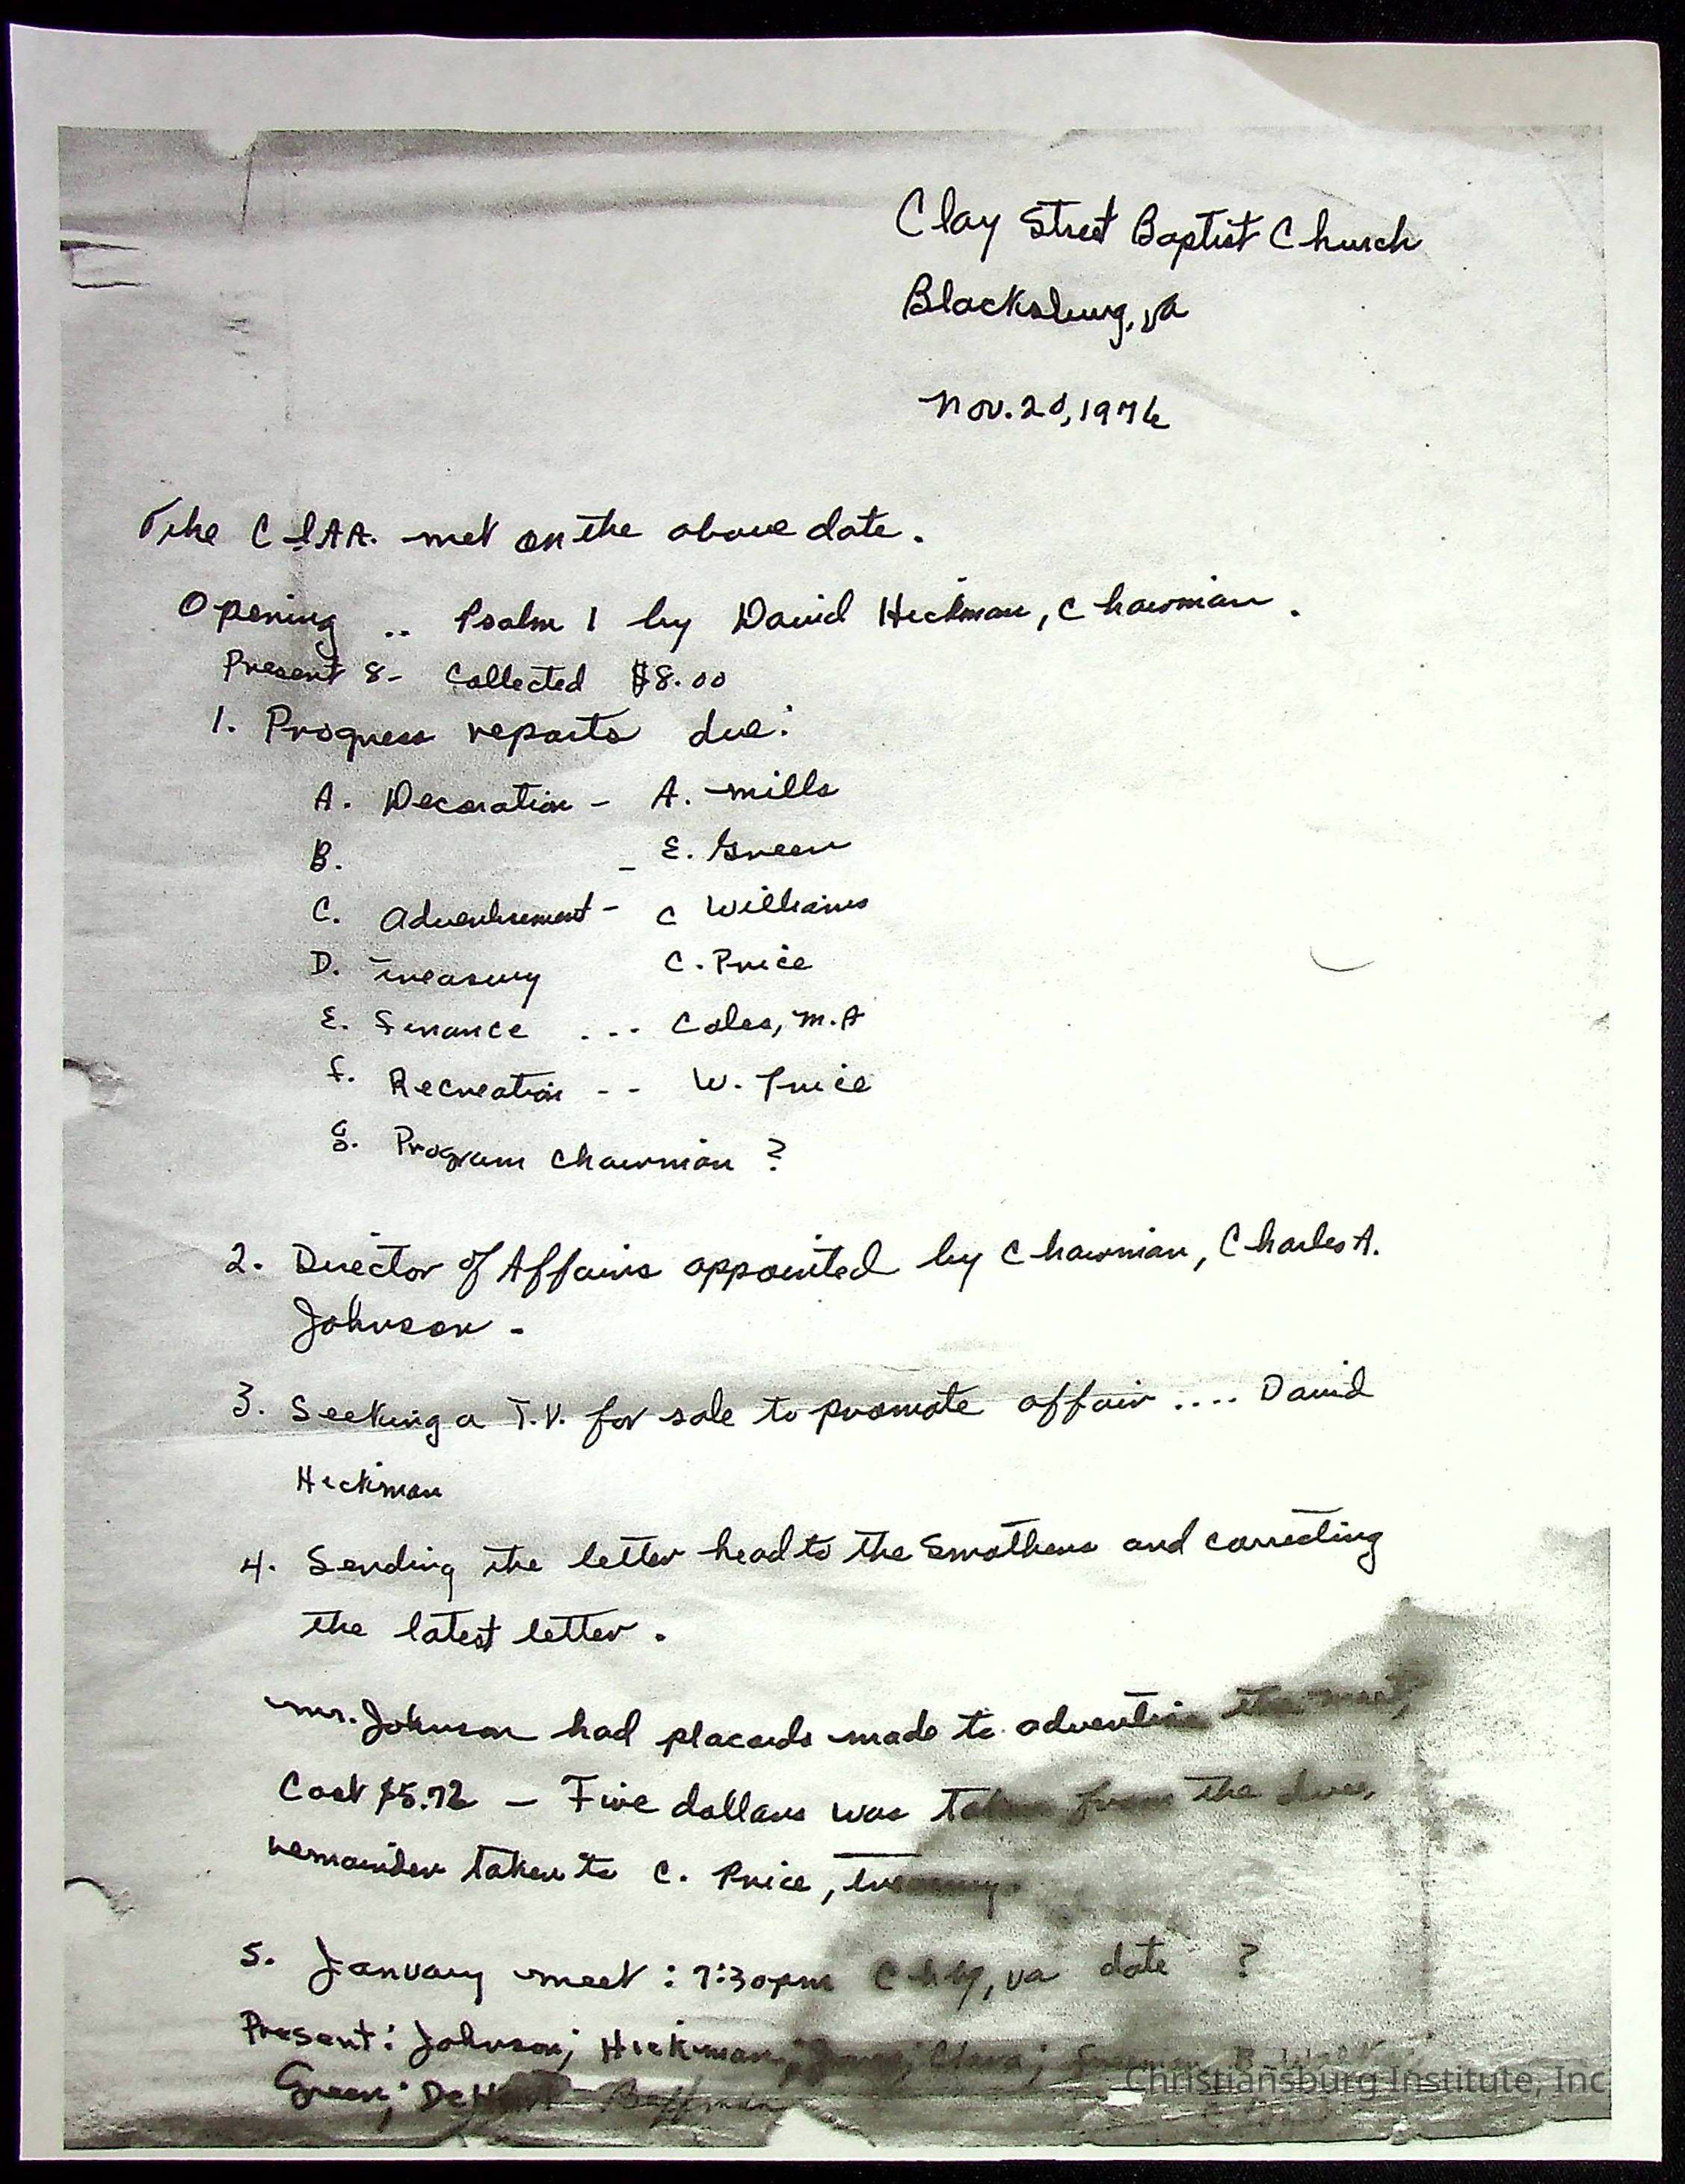 Clay Street Baptist Church
Blacksburg, Va
Nov. 20, 1976
The CIAA. met on the above date.
Opening .. Psalm 1 by David Hickman, Chairman.
Present 8- Collected $8.00
1. Progress reports due:
A. Decoration - A. Mills
B. - E. Green
C. Advertisement - C Williams
D. Treasury C. Price
E. Finance ... Coles, M.A
F. Recreation -- W. Price
G. Program Chairman ?
2. Director of Affairs appointed by Chairman, Charles A.
Johnson.
3. Seeking a T.V. for sale to promote affair .... David
Hickman
4. Sending the letter head to the Smothers and correcting
the latest letter.
Mr. Johnson had placards made to advertise the
Cost $5.72 - Five dollars was taken from the dues,
remainder taken to C. Price, treasury.
5. January meet: 7:30pm Chbg, Va date ?
Present: Johnson; Hickman; Clara;
Green;
Christiansburg Institute, Inc